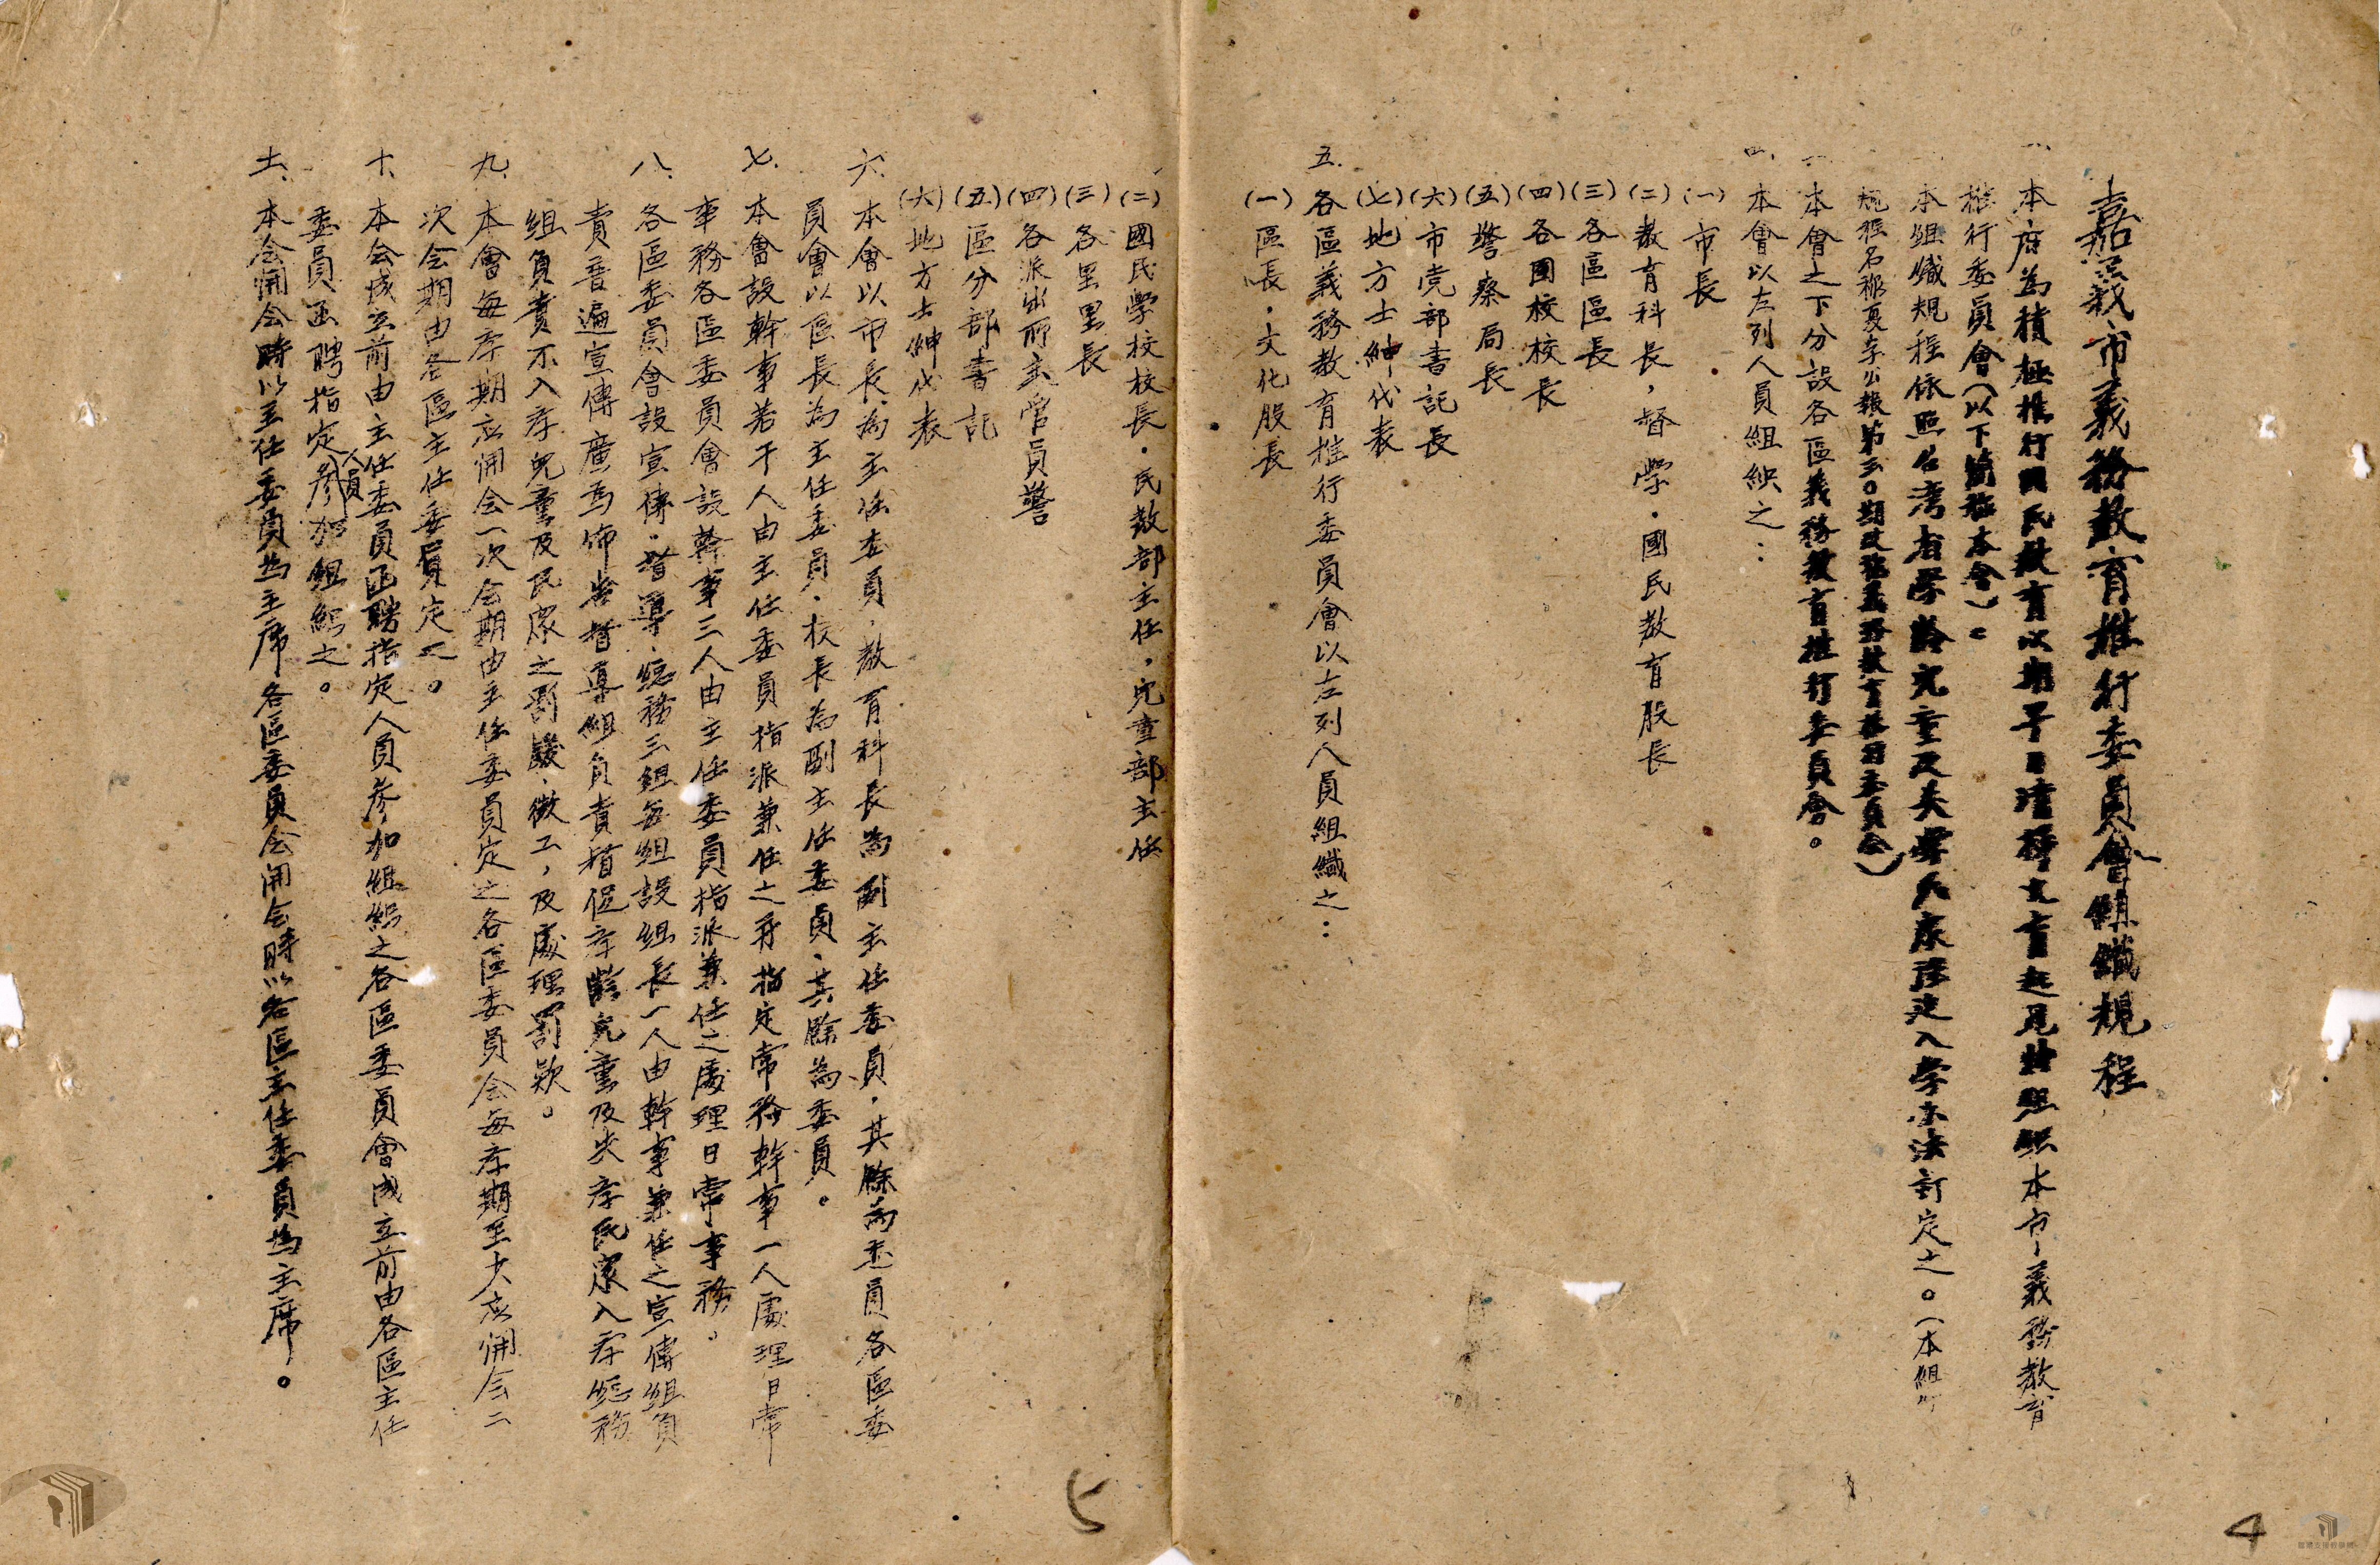 嘉義市義務教育推行委員會組織規程
一、本府為積極推行國民教育以期早日清掃文盲起見特組織本市義務教育
推行委員會（以下簡稱本會）。
本組織規程依照台湾省學齡兒童及失學民众強迫入學办法訂定之。（本組
規程名称夏字公報第三0期改為義務教育推行委員会）
一、本會之下分設各區義務教育推行委員會。
四、本會以左列人員組織之：
(一)市長
(二)教育科長，督學．國民教育股長
(三)各區區長
(四)各國校校長
(五)警察局長
(六)市党部書記長
(七)地方士紳代表
五.各區義務教育推行委員會以左列人員組織之：
(一)區長，文化股長
(二)國民學校校長．民教部主任，兒童部主任
(三)各里里長
(四)各派出所主管員警
(五)區分部書記
(六)地方士紳代表
六.本會以市長為主任委員，教育科長為副主任委員，其餘為委員各區委
員會以區長為主任委員，校長為副主任委員，其餘為委員。
七.本會設幹事若干人由主任委員指派兼任之并指定常務幹事一人處理日常
事務各區委員會設幹事三人由主任委員指派兼任之處理日常事務。
八.各區委員會設宣傳．督導．總務三組每組設組長一人由幹事兼任之宣傳組負
責普遍宣傳廣為佈告督導組負責督促学齡兒童及失学民眾入学總務
組負責不入学兒童及民众之罰鍰．徵工，及處理罰欵。
九.本會每学期应開会一次会期由主任委員定之各區委員会每学期至少应開会二
次会期由各區主任委員定之。
十、本会成立前由主任委員函聘指定人員参加組織之各區委員會成立前由各區主任
委員函聘指定人員参加組織之。
十一、本会開会時以主任委員為主席各區委員会開会時以各區主任委員為主席。
5
4